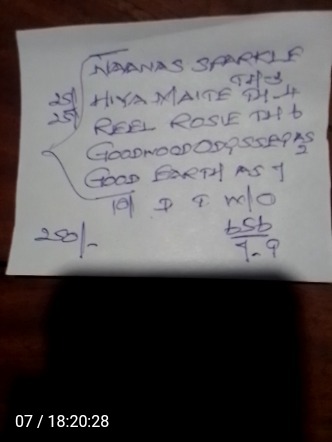 NAANAS SPARKLE
TH-3
25/ HIYA MAITE TH-4
25/ REEL ROSIE TH 6
GOODWOOD ODYSSEY AS 2
GOOD EARTH AS 7
10/ D P W/O
250/- 656
7-9
07 / 18:20:28